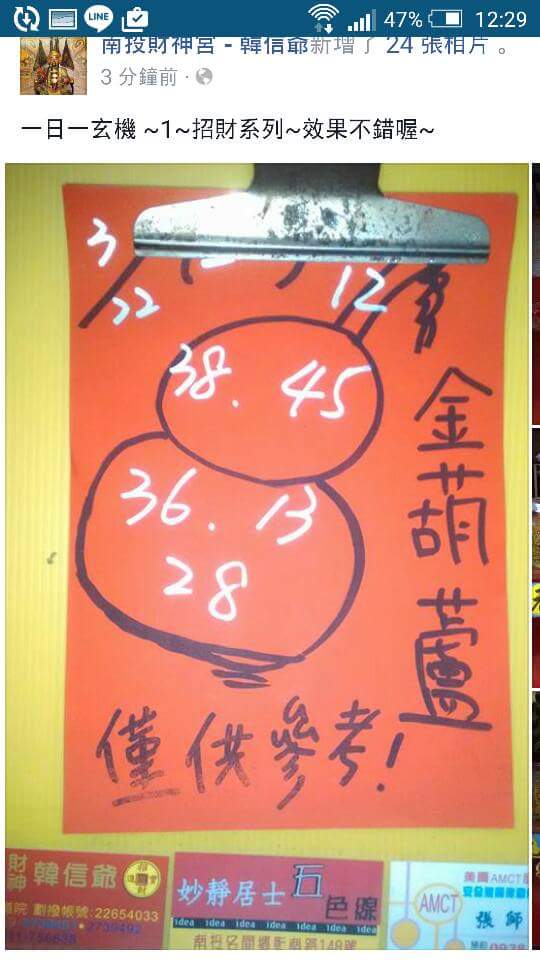 47% 12:29
南投財神宮 - 韓信爺新增了 24 張相片 。
3 分鐘前 ·
一日一玄機 ~1~招財系列~效果不錯喔~
3
22
12
38. 45
36. 13
28
金葫蘆
僅供參考!
財神 韓信爺
劃撥帳號:22654033
妙靜居士 石色線
idea idea idea idea idea idea
美國AMCT
AMCT
張師